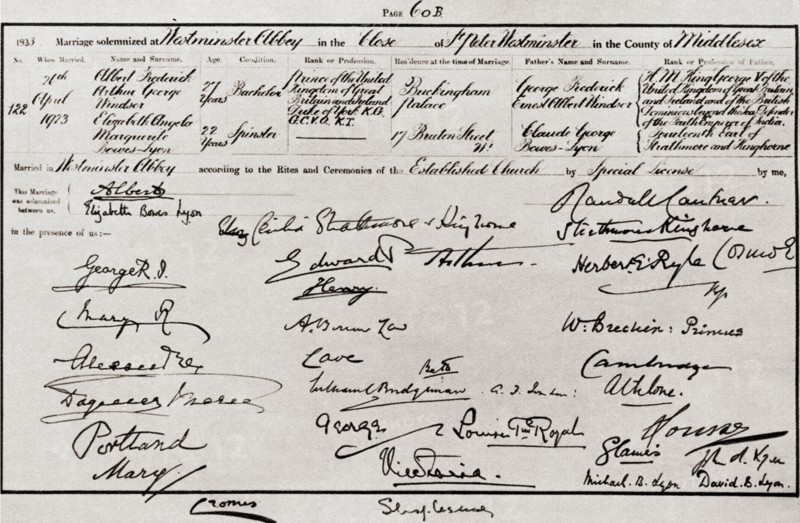 PAGE 60B.
1923 Marriage solemnized at Westminster Abbey in the Close of St Peter Westminster in the County of Middlesex
No. When Married. Name and Surname. Age. Condition. Rank or Profession. Residence at the time of Marriage. Father's Name and Surname. Rank or Profession of Father.
122
26th April 1923
Albert Frederick
Arthur George
Windsor
27 Years
Bachelor
Prince of the United
Kingdom of Great
Britain and Ireland
Duke of York K.G.
G.C.V.O. K.T.
Buckingham
Palace
George Frederick
Ernest Albert Windsor
H. M. King George V of the
United Kingdom of Great Britain
and Ireland and of the British
Dominions beyond the Seas Defender
of the Faith Emperor of India.
Elizabeth Angela
Marguerite
Bowes-Lyon
22 Years
Spinster
17 Bruton Street
W1
Claude George
Bowes-Lyon
Fourteenth Earl of
Strathmore and Kinghorne
Married in Westminster Abbey according to the Rites and Ceremonies of the Established Church by Special License by me,
This Marriage was solemnized between us,
Albert
Elizabeth Bowes Lyon
Randall Cantuar.
in the presence of us:—
Cecilia Strathmore & Kinghorne
Strathmore & Kinghorne
George R.I.
Edward P
Arthur
Herbert E Ryle
Mary R
Henry
A. Bonar Law
W: Brechin: Primus
Alexandra
Cave
Cambridge
William C Bridgeman
Athlone.
Portland
George
Louise Pss Royal
Mary
Victoria
Glamis
Michael. B. Lyon
David. B. Lyon.
Cromer